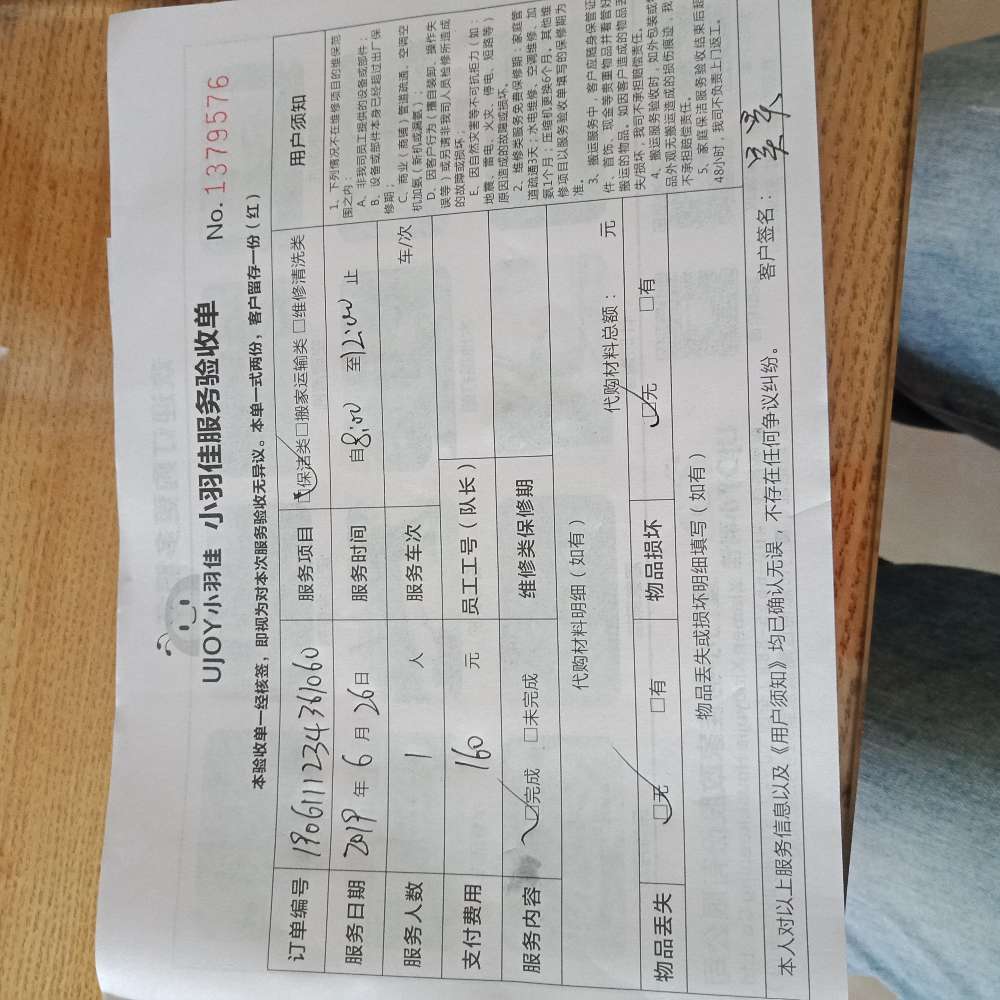 UJOY小羽佳 小羽佳服务验收单
No. 1379576
本验收单一经核签，即视为对本次服务验收无异议。本单一式两份，客户留存一份（红）
订单编号 1906111234361060 服务项目 □保洁类□搬家运输类□维修清洗类
服务日期 2019年6月26日 服务时间 自8:00 至12:00 止
服务人数 1 人 服务车次 车/次
支付费用 160 元 员工工号（队长）
服务内容 □完成 □未完成 维修类保修期
代购材料明细（如有） 代购材料总额： 元
物品丢失 □无 □有 物品损坏 □无 □有
物品丢失或损坏明细填写（如有）
用户须知
1、下列情况不在维修项目的维保范
围之内：
A、非我司员工提供的设备或部件；
B、设备或部件本身已经超过出厂保
修期；
C、商业（商铺）管道疏通、空调空
机加氨（新机或漏氨）；
D、因客户行为（擅自装卸、操作失
误等）或另请非我司人员检修所造成
的故障或损坏；
E、因自然灾害等不可抗拒力（如：
地震、雷电、火灾、停电、短路等）
原因造成的故障或损坏。
2、维修类服务免费保修期：家庭管
道疏通3天；水电维修、空调维修、加
氨1个月；压缩机更换6个月。其他维
修项目以服务验收单填写的保修期为
准。
3、搬运服务中，客户应随身保管证
件、首饰、现金等贵重物品并看管好
搬运的物品。如因客户造成的物品丢
失/损坏，我司不承担赔偿责任。
4、搬运服务验收时，如外包装或
品外观无搬运造成的损伤痕迹，我
不承担赔偿责任。
5、家庭保洁服务验收结束后超
48小时，我司不负责上门返工。
本人对以上服务信息以及《用户须知》均已确认无误，不存在任何争议纠纷。 客户签名：